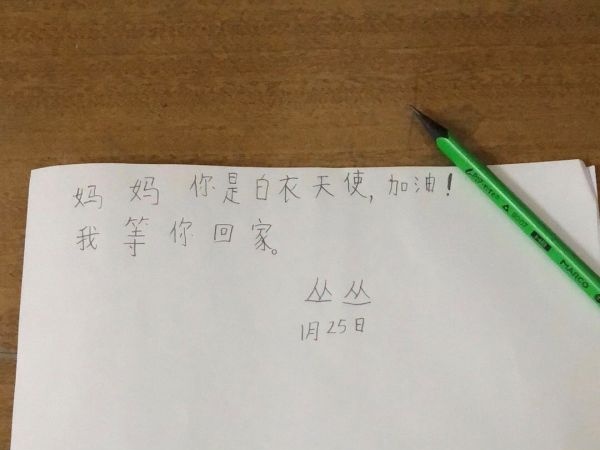 妈妈你是白衣天使,加油!
我等你回家。
丛丛
1月25日
MARCO